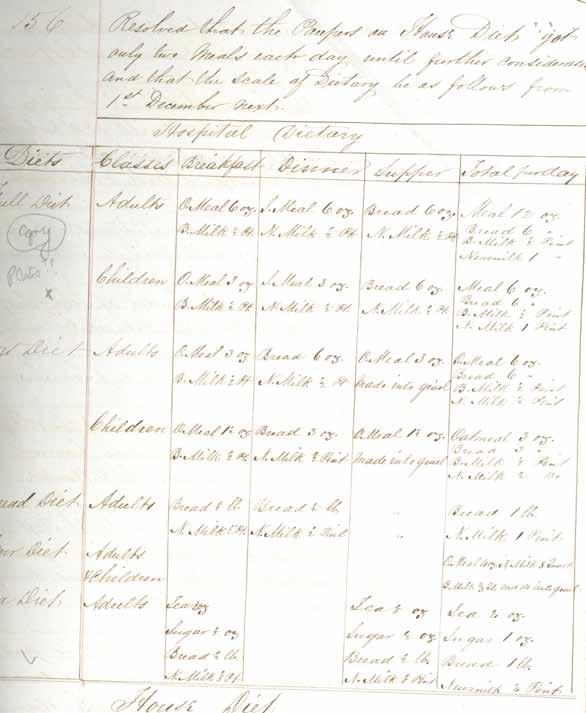 156
Resolved that the Paupers on House Diet "get
only two Meals each day until further considerat
and that the Scale of Dietary be as follows from
1st December next.
Hospital Dietary
Diets Classes Breakfast Dinner Supper Total per day
Full Diet Adults O.Meal 6 oz I. Meal 6 oz Bread 6 oz Meal 12 oz
B. Milk ½ Pt. N. Milk ½ Pt N. Milk ½ Pt Bread 6 "
B. Milk ½ Pint
Newmilk 1 "
copy
Children O.Meal 3 oz I. Meal 3 oz Bread 6 oz Meal 6 oz
B. Milk ½ Pt N. Milk ½ Pt. N. Milk ½ Pt. Bread 6 "
B. Milk ½ Pint
N. Milk 1 Pint
x
Diet Adults O.Meal 3 oz Bread 6 oz O.Meal 3 oz O.Meal 6 oz
B. Milk ½ Pt N. Milk ½ Pt made into gruel Bread 6 "
B. Milk ½ Pint
N. Milk ½ Pint
Children O.Meal 1½ oz Bread 3 oz. O.Meal 1½ oz Oatmeal 3 oz
B. Milk ½ Pt. N. Milk ½ Pint made into gruel Bread 3 "
B. Milk ½ Pint
N. Milk ½ Do
read Diet Adults Bread ½ lb Bread ½ lb " Bread 1 lb
N. Milk ½ Pt N. Milk ½ Pint " N. Milk 1 Pint
Diet Adults
& Children
O.Meal 4 oz N. Milk
made into gruel
a Diet Adults Tea oz Tea oz Tea oz
Sugar ½ oz Sugar ½ oz Sugar 1 oz
Bread ½ lb Bread ½ lb Bread 1 lb
N. Milk Pt N. Milk Pint Newmilk ½ Pint
House Diet